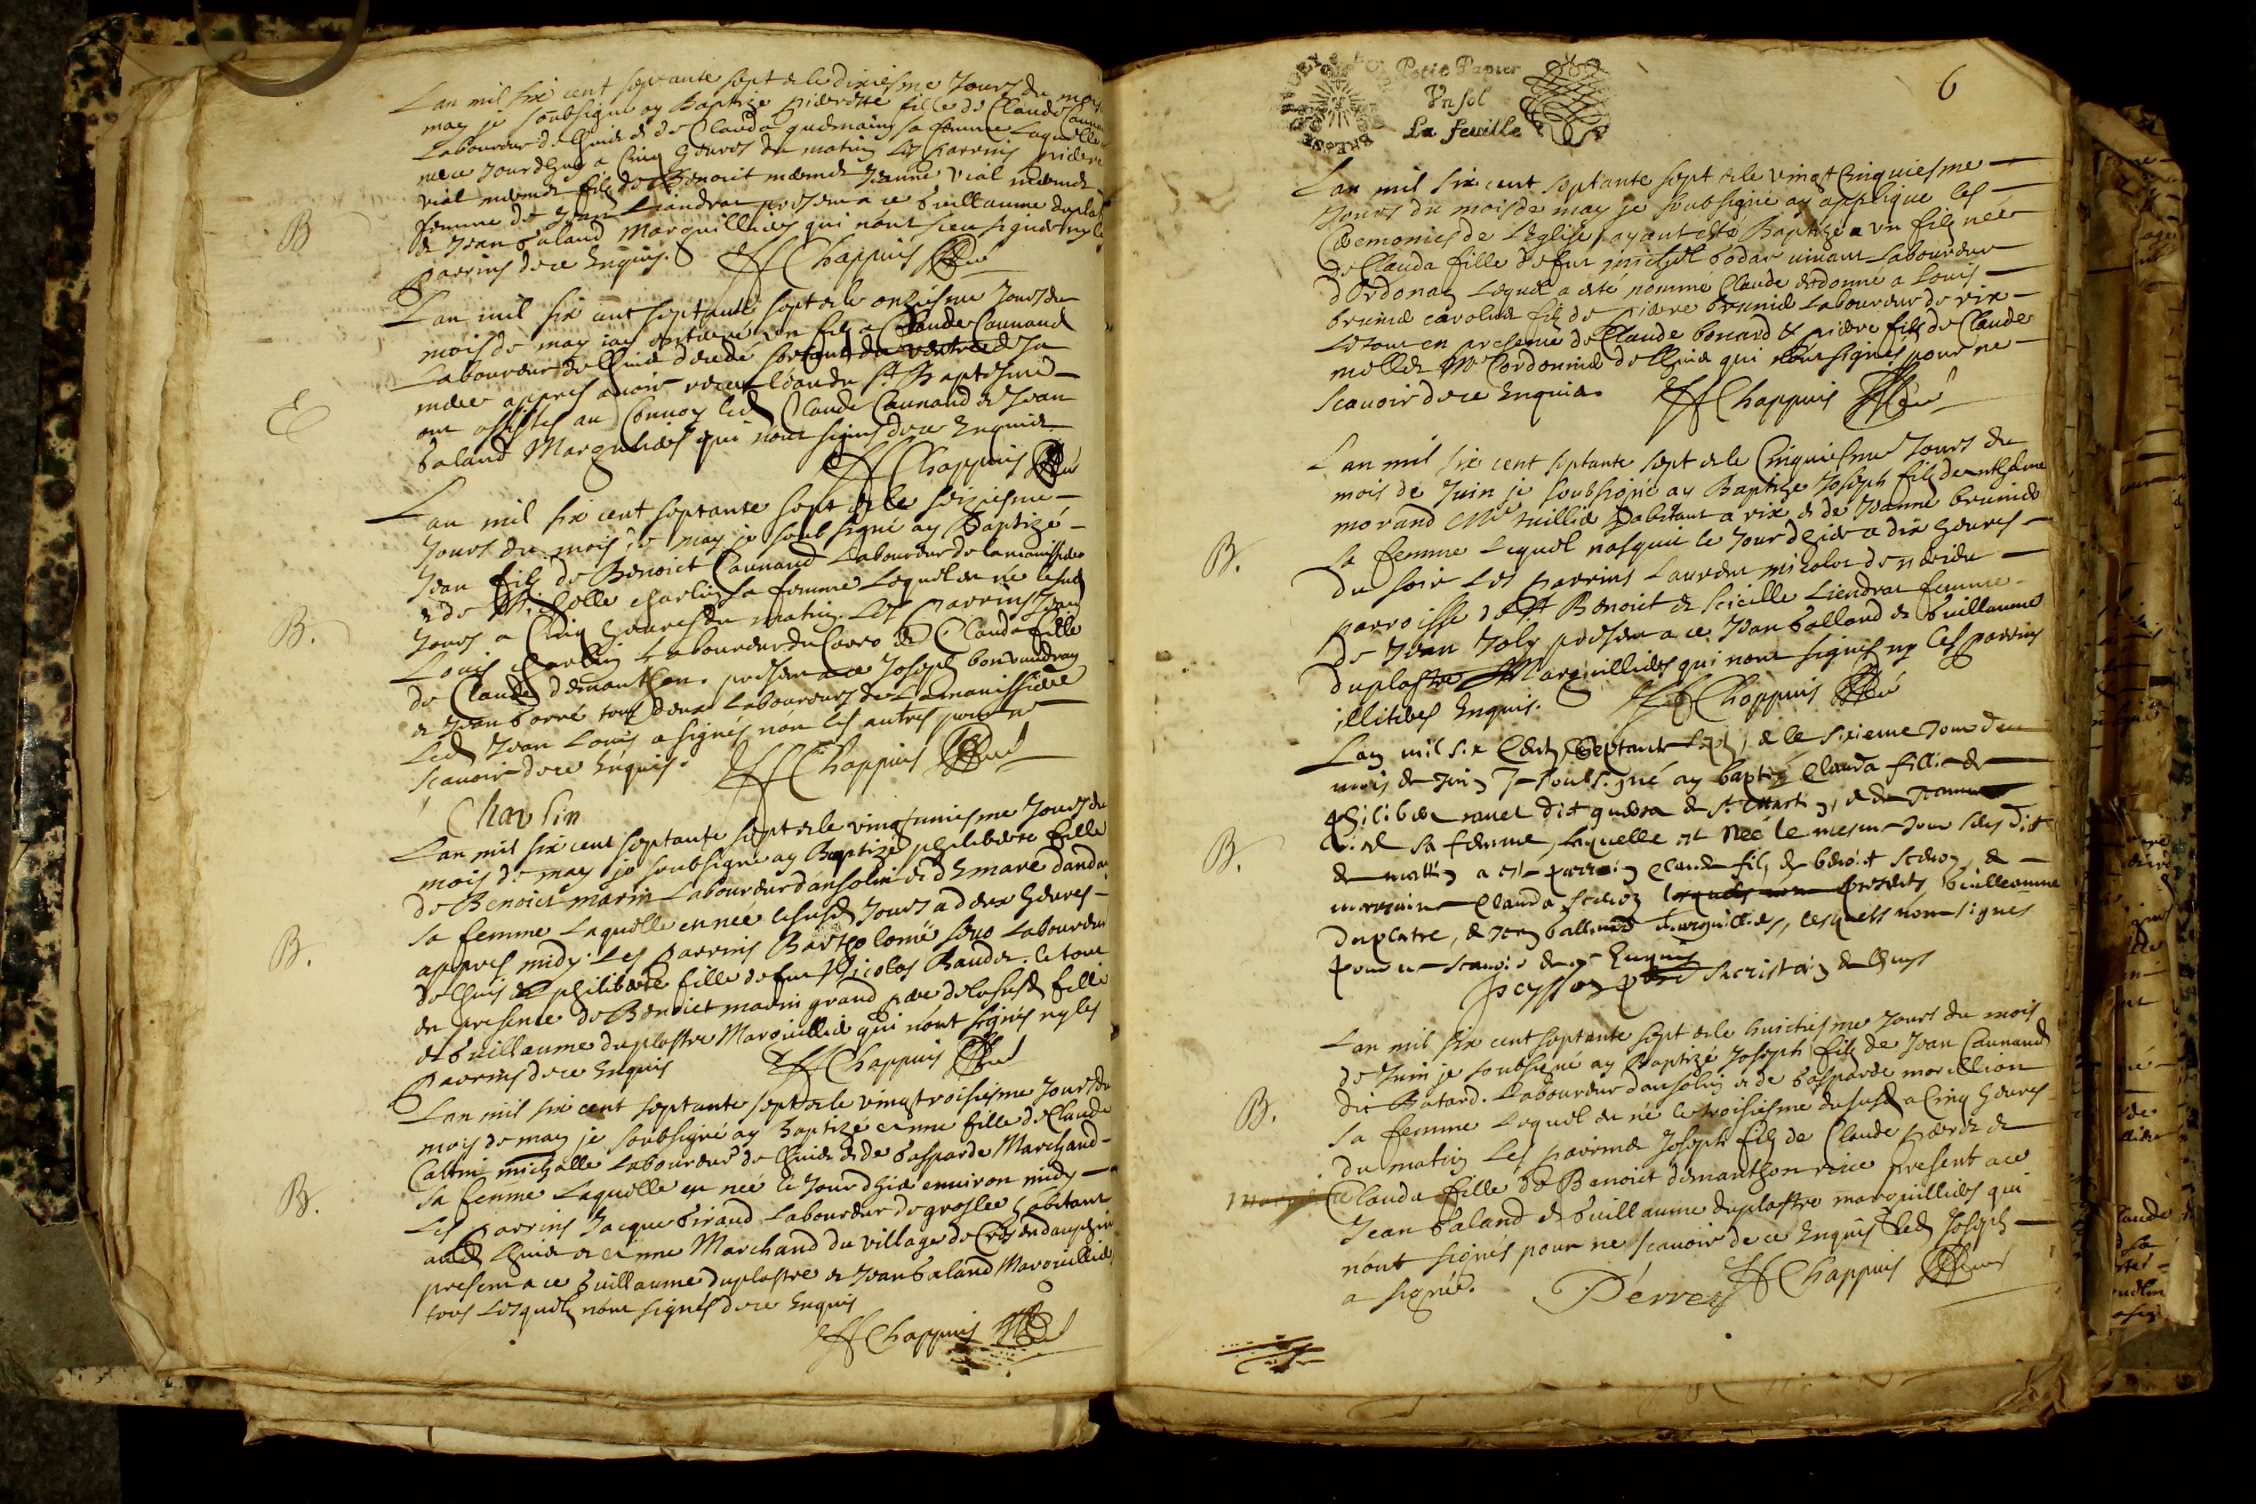 Lan mil six cent septante sept & le dixiesme Jours du mois
may je soubsigne ay Baptize pierrette fille de Claude Caunand
Laboureur de Lhuis & de Clauda quemain sa femme Laquelle
nee ce Jourdhuy a Cinq heures du matin Les Parrins pierre
vial fils de Benoict Jeanne vial
femme de Jean Liandrat present a ce Guillaume duplastre
B
& Jean Galand Marguilliers qui nont signer ny les
Parrins de ce Enquis. Chappuis
Lan mil six cent septante sept & le onziesme Jours du
mois de may jay enterré un fils a Claude Caunand
Laboureur de Lhuis decedé sortant du ventre de sa
mere appres avoir receu leau du St Baptesme
E
ont assistes au Convoy led Claude Caunand & Jean
Galand Marguliers qui nont signes de ce Enquis
Chappuis
Lan mil six cent septante sept & le seiziesme
Jours du mois de may je soub signe ay Baptizé
Jean fils de Benoict Caunand Laboureur de lamanissiere
& de Micholle charlin sa femme Lequel est né lesusd
B.
Jours a Cinq heures du matin. Les Parrins Jean
Louis charlin Laboureur du Cevro & Clauda fille
de Claude demanthon. present a ce Joseph bonvaudray
& Jean Gorré tous deux Laboureurs de Lamanissiere
Led Jean Louis a signés non les autres pour ne
scavoir de ce Enquis. Chappuis
Charlin
Lan mil six cent septante sept & le vingtuniesme Jours du
mois de may je soubsigne ay Baptizé philiberte fille
de Benoict marin Laboureur dansolin &
sa femme Laquelle est née lesusd Jours a deux heures
B.
appres midy. Les Parrins Bartholomé Laboureur
de Lhuis & philiberte fille de feu Nicolas Baudet. le tout
en presence de Benoict marin grand pere de lasusd fille
& Guillaume duplastre Marguillier qui nont signés ny les
Parrins de ce Enquis Chappuis
Lan mil six cent septante sept & le vingtroisiesme Jours du
mois de may je soubsigné ay Baptizé anne fille de Claude
michalle Laboureur de Lhuis & de Gasparde Marchand
B.
sa femme Laquelle est née ce Jourdhui environ midy
Les Parrins Jacque Giraud Laboureur de groslee habitant
aud Lhuis & anne Marchand du village de en dauphiné
present a ce Guillaume duplastre & Jean Galand Marguilliers
tous Lesquels nont signés de ce Enquis
Chappuis
6
Petit Papier
Vn sol
La feuille
Lan mil six cent septante sept & le vingt Cinquiesme
Jours du mois de may je soubsigné ay applique les
Ceremonies de Leglise, ayant esté Baptizé a un fils née
de Clauda fille de feu michel bodar vivant Laboureur
dOrdonaz Lequel a esté nommé Claude & donné a Louis
brunier fils de pierre brunier Laboureur de rix
Le tout en presence de Claude bonard & pierre fils de Claude
mollet Me Cordonnier de Lhuis qui nont signés pour ne
scavoir de ce Enquis. Chappuis
Lan mil six cent septante sept & le Cinquiesme Jours du
mois de Juin je soubsigné ay Baptize Joseph fils de anthelme
morand Me tuillier habitant a rix & de Jeanne brunier
B.
sa femme Lequel nasquit le Jourdhier a dix heures
du soir Les parrins Laurent micolot
parroisse de St Benoict & Scicille Liendrat femme
de Jean Joly present a ce Jean Galland & Guillaume
duplastre Marguilliers qui nont signés ny les parrins
illiterés Enquis. Chappuis
Lan mil six Cents Septante sept, & le sixieme Jour du
mois de Juin Je soubsigné ay baptizé Clauda fillie de
philiber ravet dit de St Martin, & de Jeanne
B.
sa femme, laquelle est Neé le mesme Jour susdit
de mattin a esté parrain Claude fils de benoist &
marraine Clauda presents Guilleaume
Duplatre, & Jean Galland Marguilliers, lesquels nont signes
pour ne scavoir de ce Enquis
Peysson sacristain de Lhuys
Lan mil six cent septante sept & le huictiesme Jours du mois
de Juin je soubsigné ay Baptizé Joseph fils de Jean Caunand
dit Batard. Laboureur dansolin & de Gasparde morellion
B.
sa femme Lequel est né le troisiesme dususd a Cinq heures
du matin Les parrins Joseph fils de Claude perret &
Clauda fille de Benoict demanthon present a ce
Jean Galand & Guillaume duplastre marguilliers qui
nont signés pour ne scavoir de ce Enquis & led Joseph
a signé. Perret Chappuis